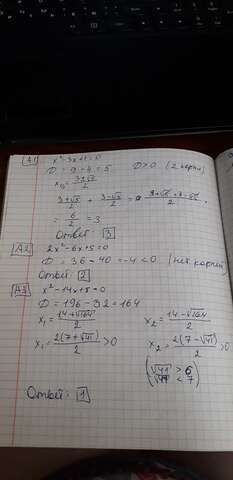 A1 x²-3x+1=0
D = 9-4=5   D>0 (2 корня)
x₁,₂= (3±√5)/2
(3+√5)/2 + (3-√5)/2 = (3+√5+3-√5)/2 =
= 6/2 = 3
Ответ 3
A2 2x²-6x+5=0
D = 36-40=-4<0 (нет корней)
Ответ 2
A3 x²-14x+8=0
D = 196-32=164
x₁= (14+√164)/2   x₂= (14-√164)/2
x₁= 2(7+√41)/2 >0   x₂= 2(7-√41)/2 >0
(√41 > 6
√41 < 7)
Ответ: 1